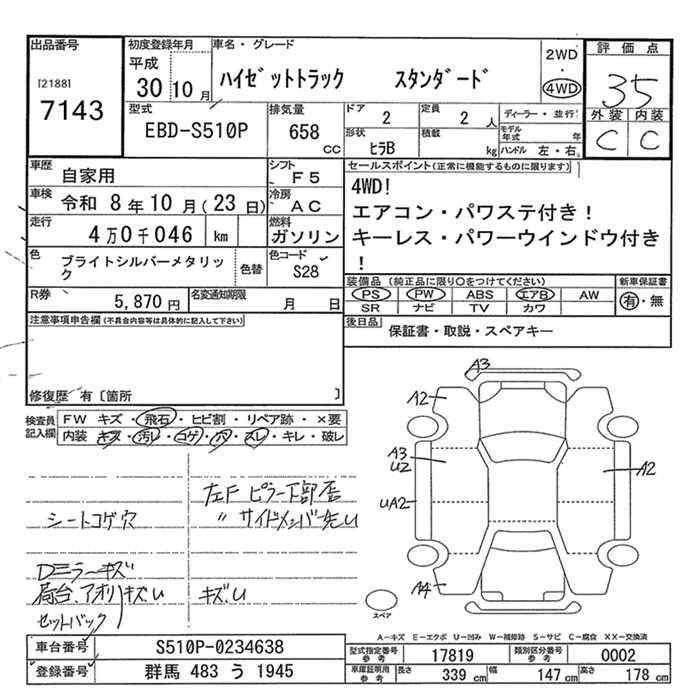 出品番号
[2188]
7143
初度登録年月
平成
30 10 月
車名・グレード
ハイゼットトラック スタンダード
2WD
・
4WD
評価点
35
外装 内装
C C
型式
EBD-S510P
排気量
658
CC
ドア
2
定員
2 人
形状
ヒラB
積載
kg
ディーラー・並行
モデル年式 年
ハンドル 左・右
車歴
自家用
シフト
F5
車検
令和 8年10月(23日)
冷房
AC
走行
4万0千046 km
燃料
ガソリン
色
ブライトシルバーメタリック
色替
色コード
S28
R券
5,870円
名変通知期限
月 日
セールスポイント(正常に機能するものに限ります)
4WD!
エアコン・パワステ付き!
キーレス・パワーウインドウ付き
!
装備品(純正品に限り○をつけてください)
PS PW ABS エアB AW
SR ナビ TV カワ
新車保証書
有・無
後日品
保証書・取説・スペアキー
注意事項申告欄(不具合内容等は具体的に記入して下さい)
修復歴 有〔箇所 〕
検査員記入欄
FW キズ・飛石・ヒビ割・リペア跡・×要
内装 キズ・汚レ・コゲ・穴・スレ・キレ・破レ
左F ピラー下部歪
シートコゲ穴
〃 サイドメンバー先い
Dミラーキズ
局台、アオリキズい キズい
セットバック
A3
A2
A3
U2
A2
UA2
A4
スペア
A-キズ E-エクボ U-凹み W-補修跡 S-サビ C-腐食 XX-交換済
車台番号
S510P-0234638
登録番号
群馬 483 う 1945
型式指定番号
参考
17819
類別区分番号
参考
0002
車庫証明用
参考
長さ 339 cm 幅 147 cm 高さ 178 cm